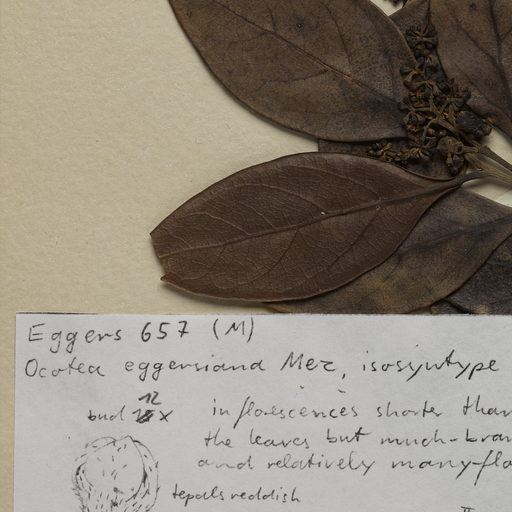 Eggers 657 (M)
Ocotea eggersiana Mez, isosyntype
bud 12 x
inflorescences shorter than
the leaves but much-bran
and relatively many-flo
tepals reddish